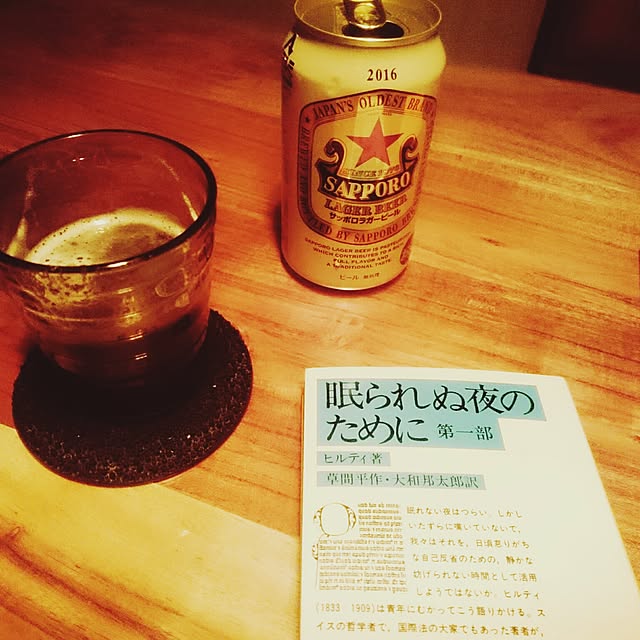 2016
JAPAN'S OLDEST BRAND
SINCE 1876
SAPPORO
LAGER BEER
サッポロラガービール
BY SAPPORO
SAPPORO LAGER BEER IS
WHICH CONTRIBUTES TO
FULL FLAVOR AND
A TRADITIONAL TASTE
ビール
眠られぬ夜の
ために 第一部
ヒルティ著
草間平作・大和邦太郎訳
眠れない夜はつらい。しかし
いたずらに嘆いていないで、
我々はそれを、日頃怠りがち
な自己反省のための、静かな
妨げられない時間として活用
しようではないか。ヒルティ
(1833-1909)は青年にむかってこう語りかける。ス
イスの哲学者で、国際法の大家でもあった著者が、